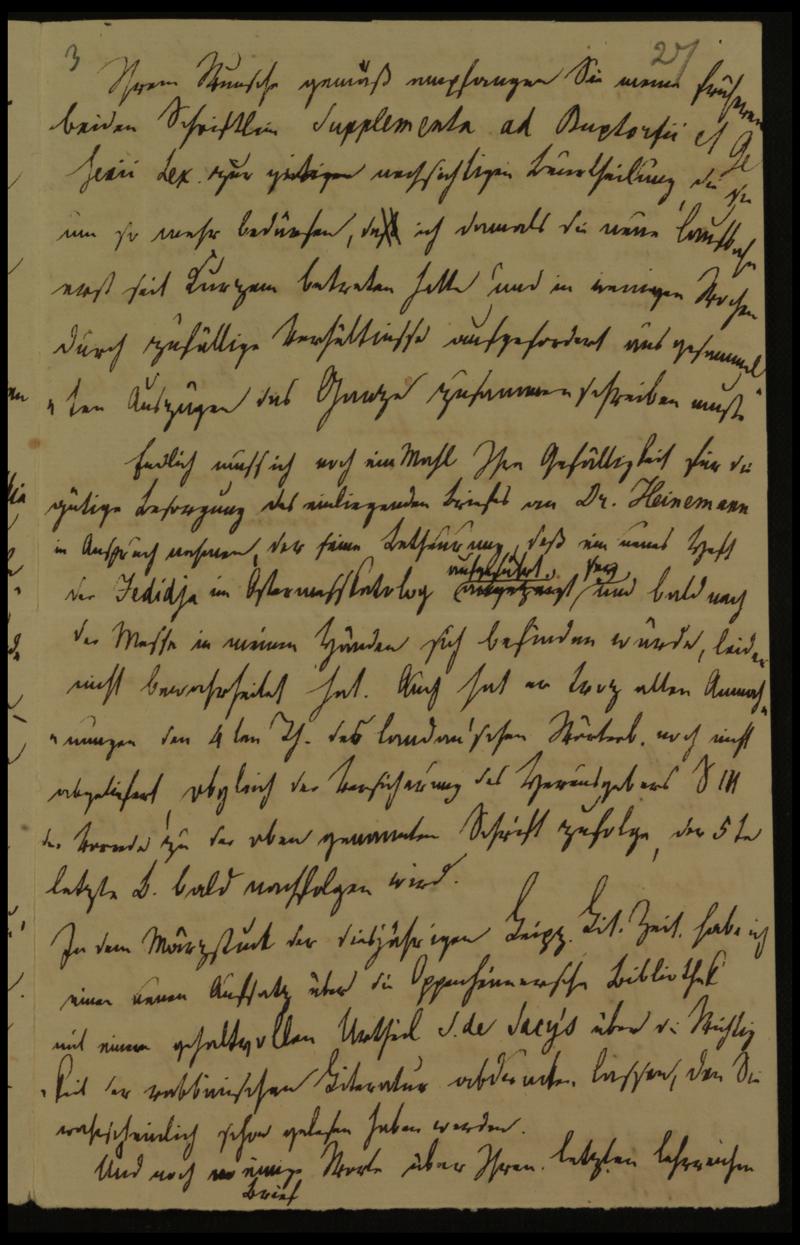 3 27
Ihrem Wunsche gemäß empfangen Sie meine früheren
beiden Schriftlein Supplementa ad Buxtorfii et Ge
senii Lex. zur gütigen nachsichtigen Beurtheilung, die sie
um so mehr bedürfen, da ich damals die neue Laufbahn
erst seit Kurzem betreten hatte und in wenigen Wochen
durch zufällige Verhältnisse aufgefordert aus gesammel
ten Auszügen das Ganze zusammenschreiben mußte
Endlich muß ich noch ein Mahl Ihre Gefälligkeit für die
gütige Besorgung des einliegenden Briefes an Dr. Heinemann
in Anspruch nehmen, der seine Betheurung, daß ein neues Heft
der Jedidja im Ostermesskatalog aufgeführt sey, und bald nach
der Messe in meinen Händen sich befinden würde, leider
nicht bewahrheitet hat. Auch hat er troz allen Anmah
nungen den 4ten Th. des Landau'schen Wörterb. noch nicht
abgeliefert, obgleich der Versicherung des Herausgebers S III
der Vorrede zu der oben genannten Schrift zufolge, der 5te
letzte B. bald nachfolgen wird.
In dem Märzstück der diesjährigen Leipz. Lit. Zeit. habe ich
einen neuen Aufsatz über die Oppenheimersche Bibliothek
mit einem gehaltvollen Urtheil S. de Sacy's über die Wichtig
keit der rabbinischen Literatur abdrucken lassen, den Sie
wahrscheinlich schon gelesen haben werden.
Und noch einige Worte über Ihren letzten lehrreichen
Brief